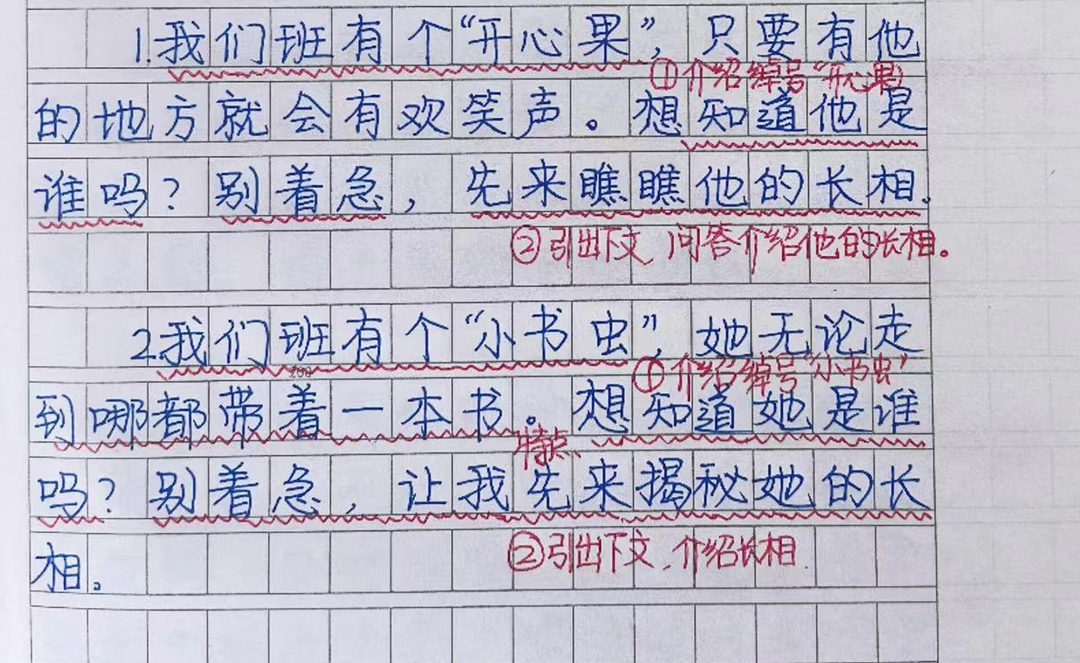 1.我们班有个“开心果”，只要有他
①介绍绰号“开心果”
的地方就会有欢笑声。想知道他是
谁吗？别着急，先来瞧瞧他的长相。
②引出下文，问答介绍他的长相。
2.我们班有个“小书虫”，她无论走
①介绍绰号“小书虫”
200
到哪都带着一本书。想知道她是谁
特点、
吗？别着急，让我先来揭秘她的长
相。
②引出下文、介绍长相